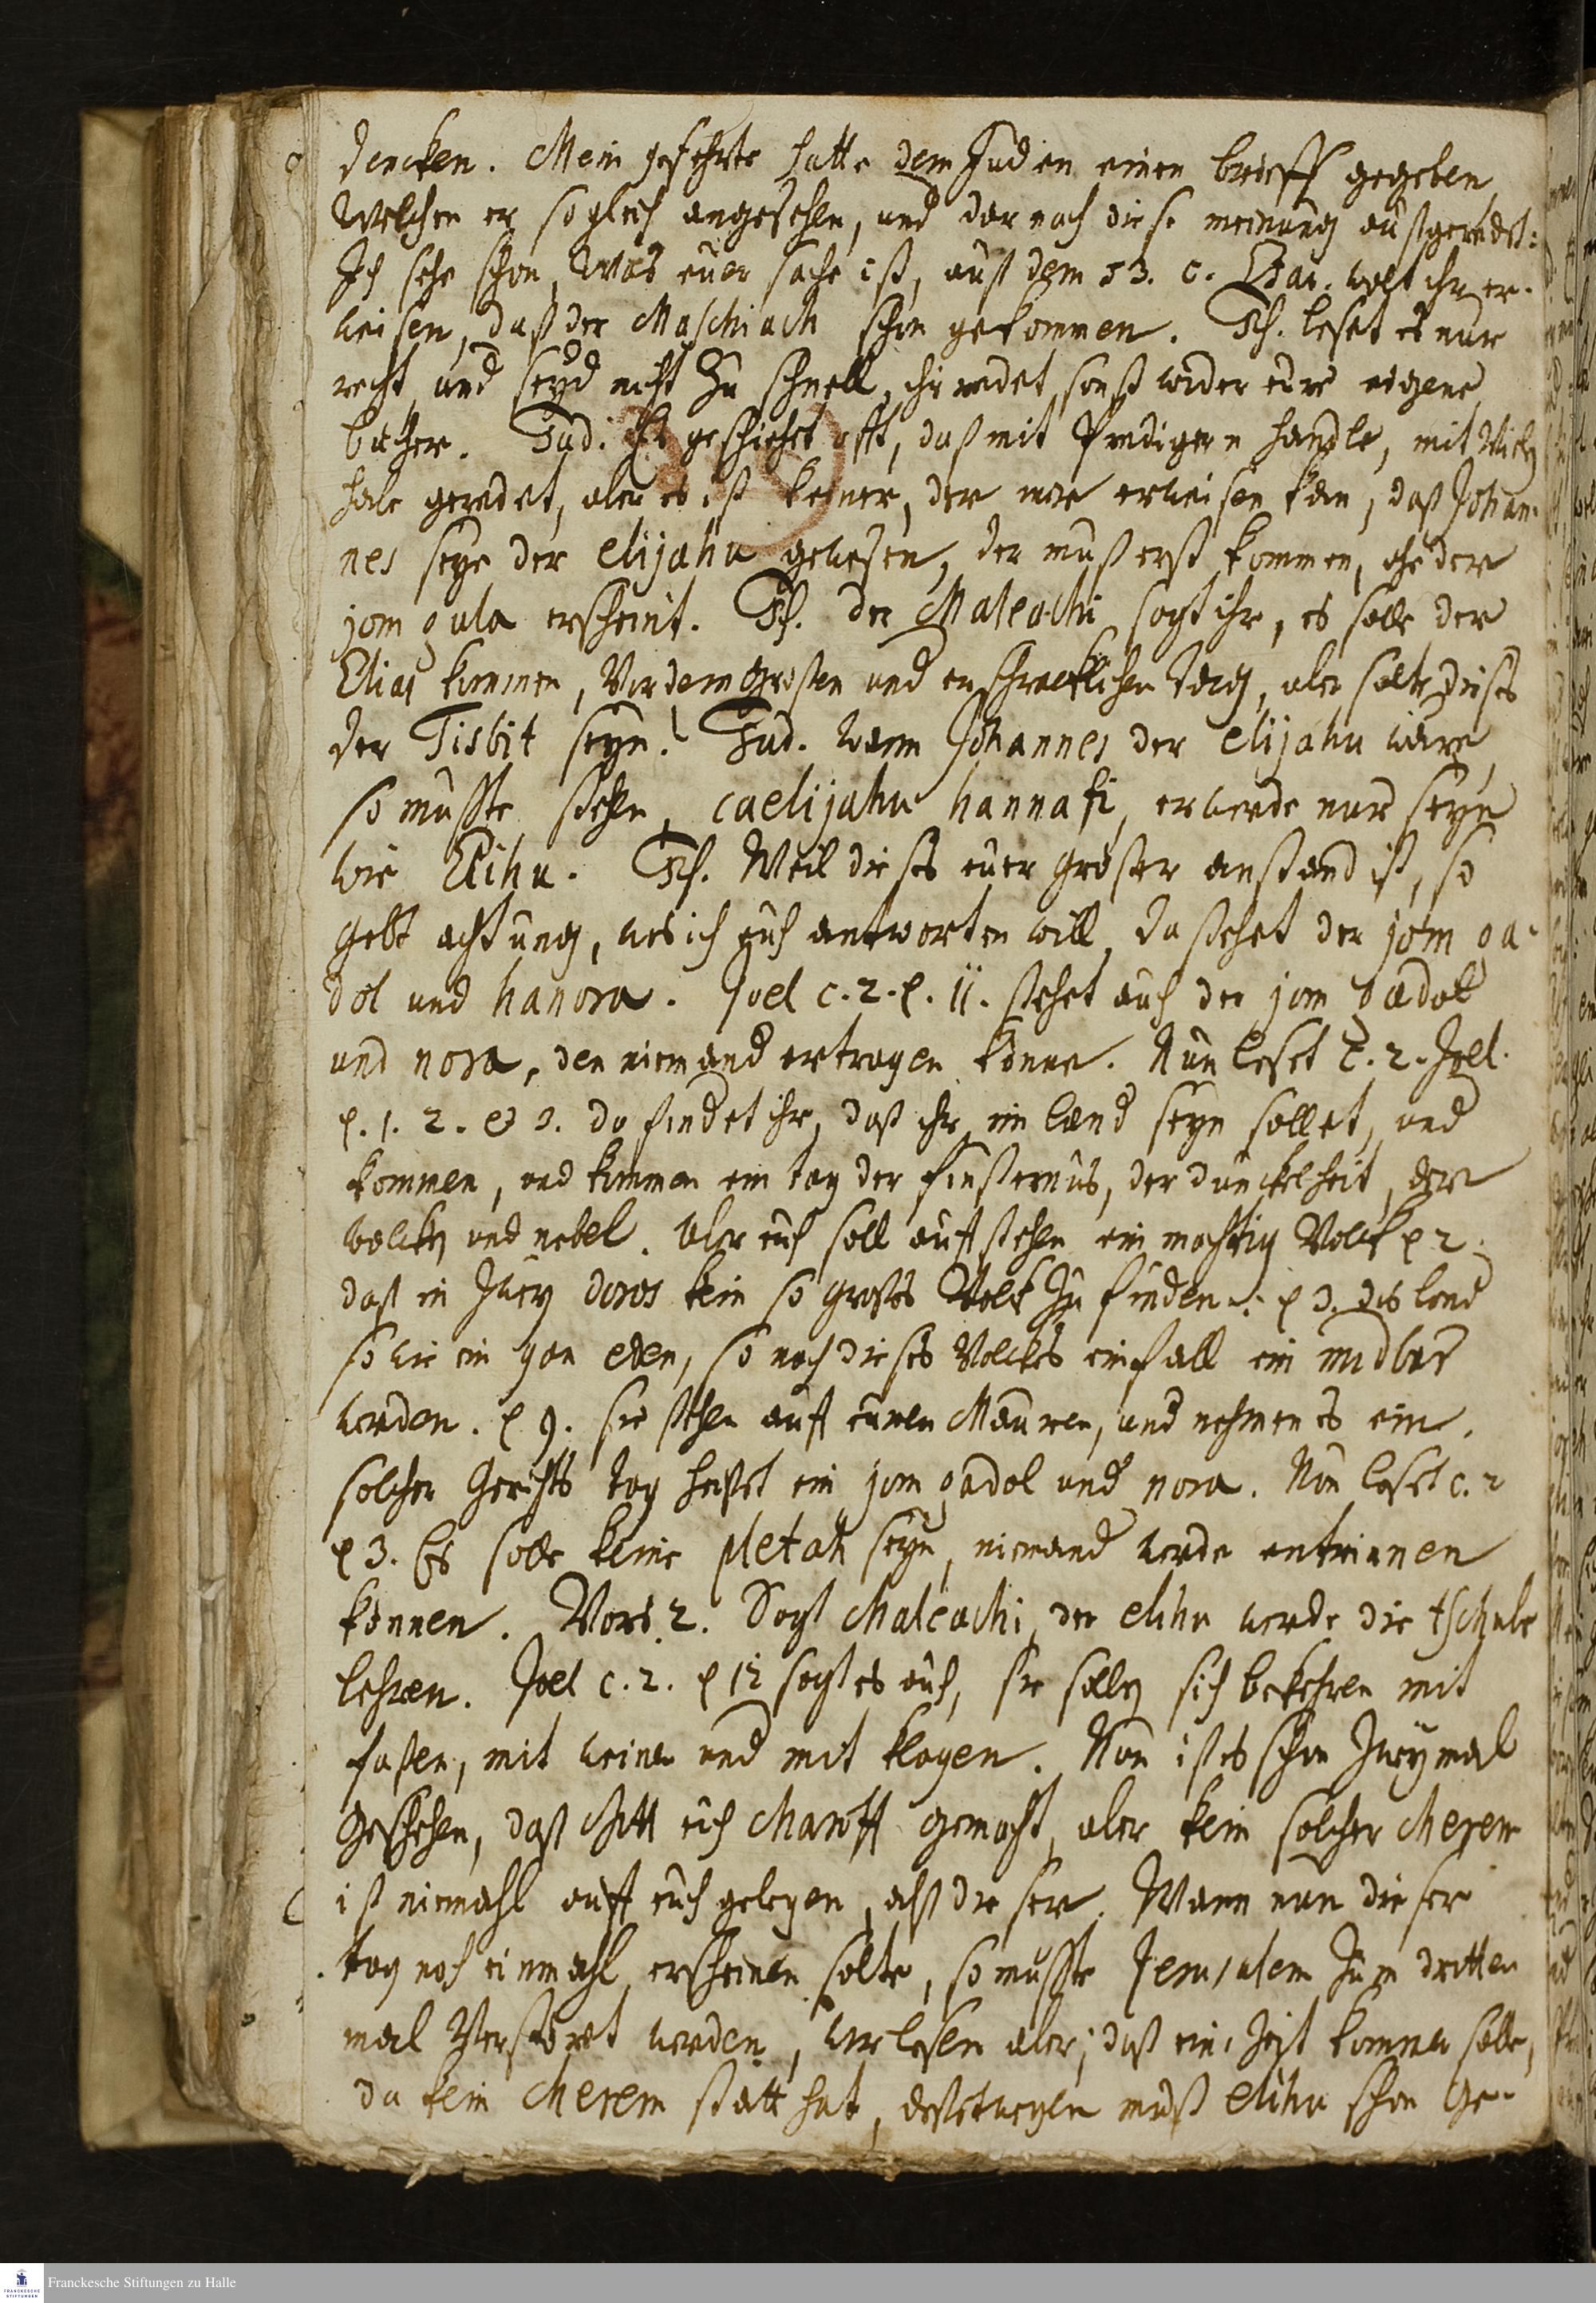 dencken. Mein gefehrte hatte dem Juden einen brieff gegeben,
Welchen er so gleich angesehen, und darnach diese meinung außgeredet:
Ich sehe schon, was euer sache ist, auß dem 53. c. Esai. wolt ihr er-
weisen, daß der Maschiach schon gekommen. Ich. leset es nur
recht und seyd nicht zu schnell, ihr redet sonst wider eure eigene
bücher. Jud. Es geschiehet offt, daß mit Predigern handle, mit vielen
habe geredet, aber es ist keiner, der mir erweisen kan, daß Johan-
nes seye der elijahu gewesen, der muß erst kommen, ehe der
jom gula erscheint. Ich. der Maleachi sagt ihr, es solle der
Elias kommen, Vor dem großen und erschrecklichen tag, aber solte dieses
der Tisbit seyn? Jud. wann Johannes der elijahu wäre,
so müste stehen, caelijahu hannafi, er werde nur seyn
wie Elihu. Ich. Weil dieses euer großer anstand ist, so
gebt achtung, was ich euch antworten will, da stehet der jom ga-
dol und hanora. Joel c. 2. v. 11. stehet auch der jom gadol
und nora, den niemand ertragen könne. Nun leset c. 2. Joel.
v. 1. 2. & 3. da findet ihr, daß ihr im land seyn sollet, und
kommen, und kommen ein tag der finsternüs, der dunckelheit, der
wolcken und nebel. Uber euch soll aufstehen ein mächtig Volck v 2.
daß in zwey doros kein so großes Volck zu finden. v 3. das land
so wie ein gan eden, so nach dieses Volckes einfall ein midbar
werden. v 9. sie stehen auff euren Mauren, und nehmen es ein.
solcher Gerichts tag heißet ein jom gadol und nora. Nun leset c. 2
v 3. Es solle keine pletah seyn, niemand werde entrinnen
können. Vors 2. Sagt Maleachi, der elihu werde die tschufe
lehren. Joel c. 2. v 12 sagt es auch, sie sollen sich bekehren mit
fasten, mit weinen und mit klagen. Nun ist es schon zweymal
Geschehen, daß Gott euch Charoff gemacht, aber kein solcher cherem
ist niemahl auff euch gelegen, alß dieser. Wann nun dieser
tag noch einmahl erscheinen solte, so müste Jerusalem zum dritten
mal Verstöret werden, wir lesen aber, daß eine Zeit kommen solle,
da kein cherem statt hat, deßetwegen muß elihu schon Ge-
Franckesche Stiftungen zu Halle